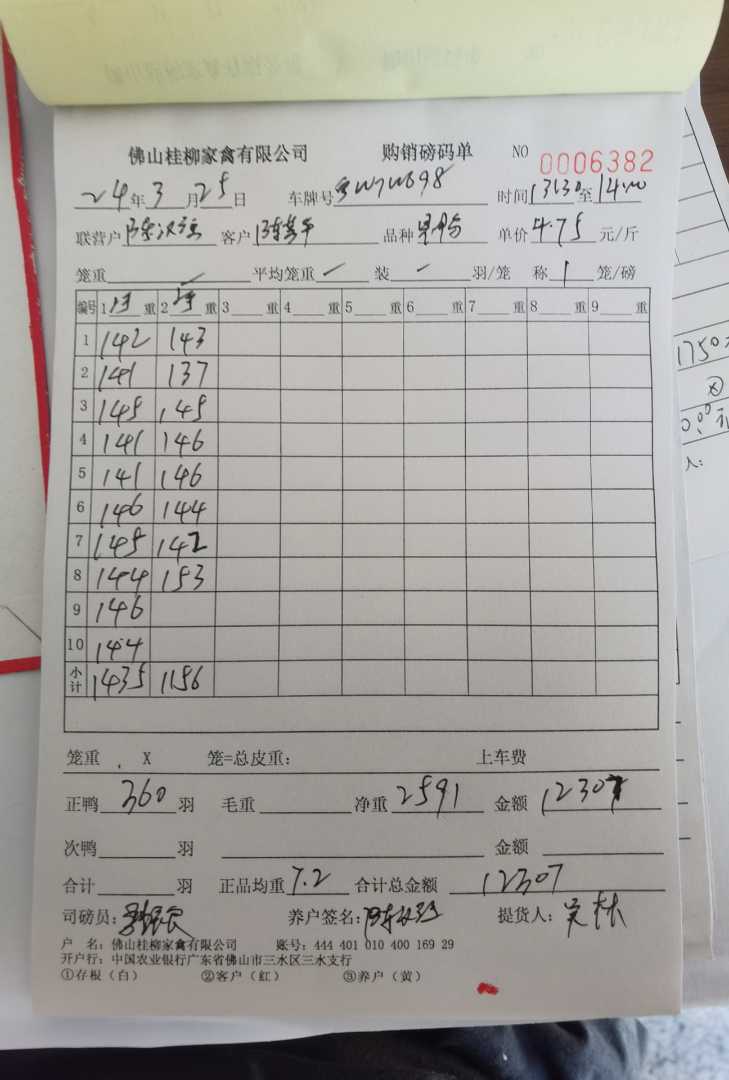 佛山桂柳家禽有限公司 购销磅码单 NO 0006382
24年3月25日 车牌号 时间13:30至14:00
联营户 客户 品种 单价4.75元/斤
笼重 平均笼重 装 羽/笼 称1笼/磅
编号 1 重 2 重 3 重 4 重 5 重 6 重 7 重 8 重 9 重
1 142 143
2 141 137
3 145 145
4 141 146
5 141 146
6 146 144
7 145 142
8 144 153
9 146
10 144
小计 1435 1156
笼重 X 笼=总皮重: 上车费
正鸭360羽 毛重 净重2591 金额12307
次鸭 羽 金额
合计 羽 正品均重7.2 合计总金额12307
司磅员: 养户签名: 提货人:
户 名: 佛山桂柳家禽有限公司 账号: 444 401 010 400 169 29
开户行: 中国农业银行广东省佛山市三水区三水支行
①存根(白) ②客户(红) ③养户(黄)
1750